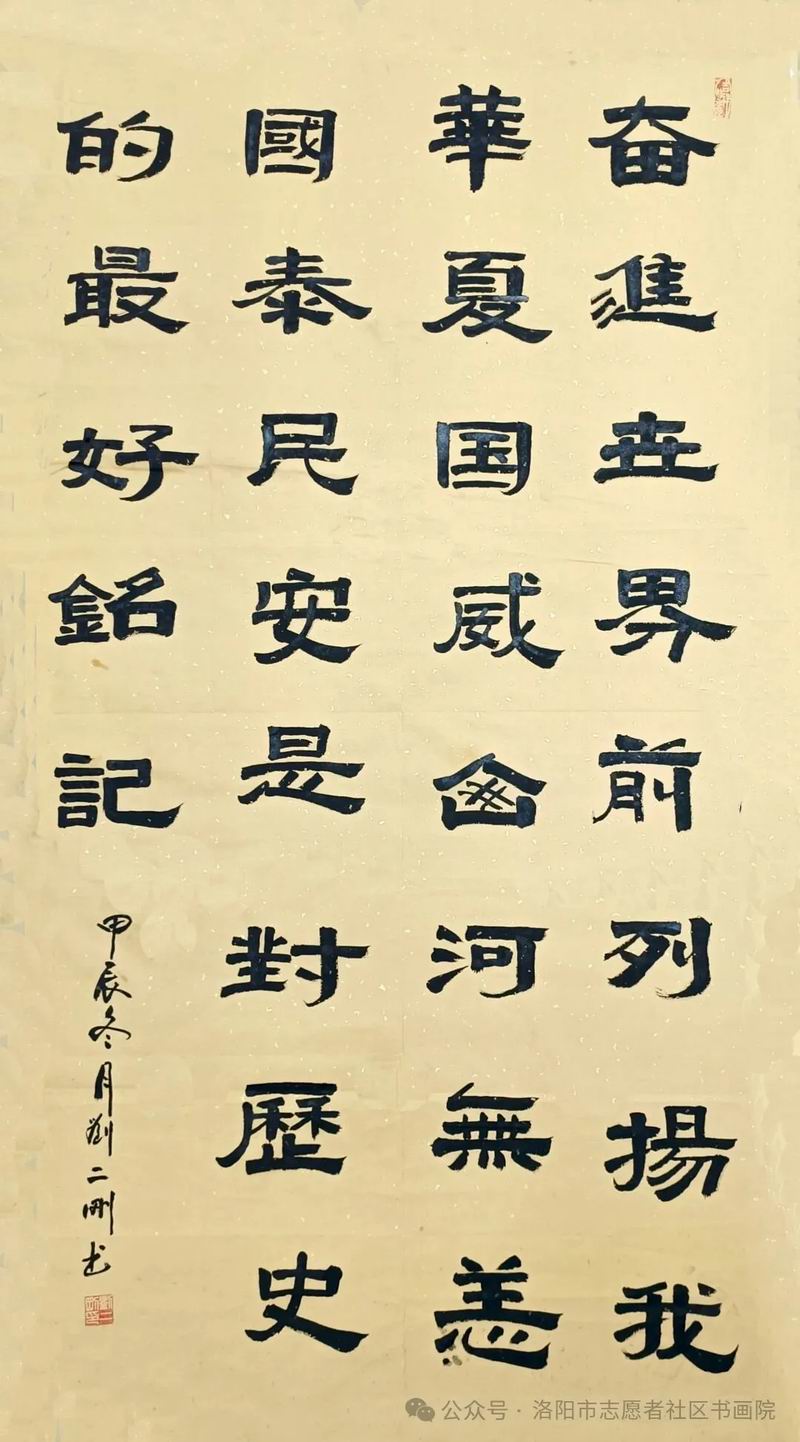 奋進世界前列揚我
華夏国威山河無恙
國泰民安是對歷史
的最好銘記
甲辰冬月劉二刪书
公众号·洛阳市志愿者社区书画院